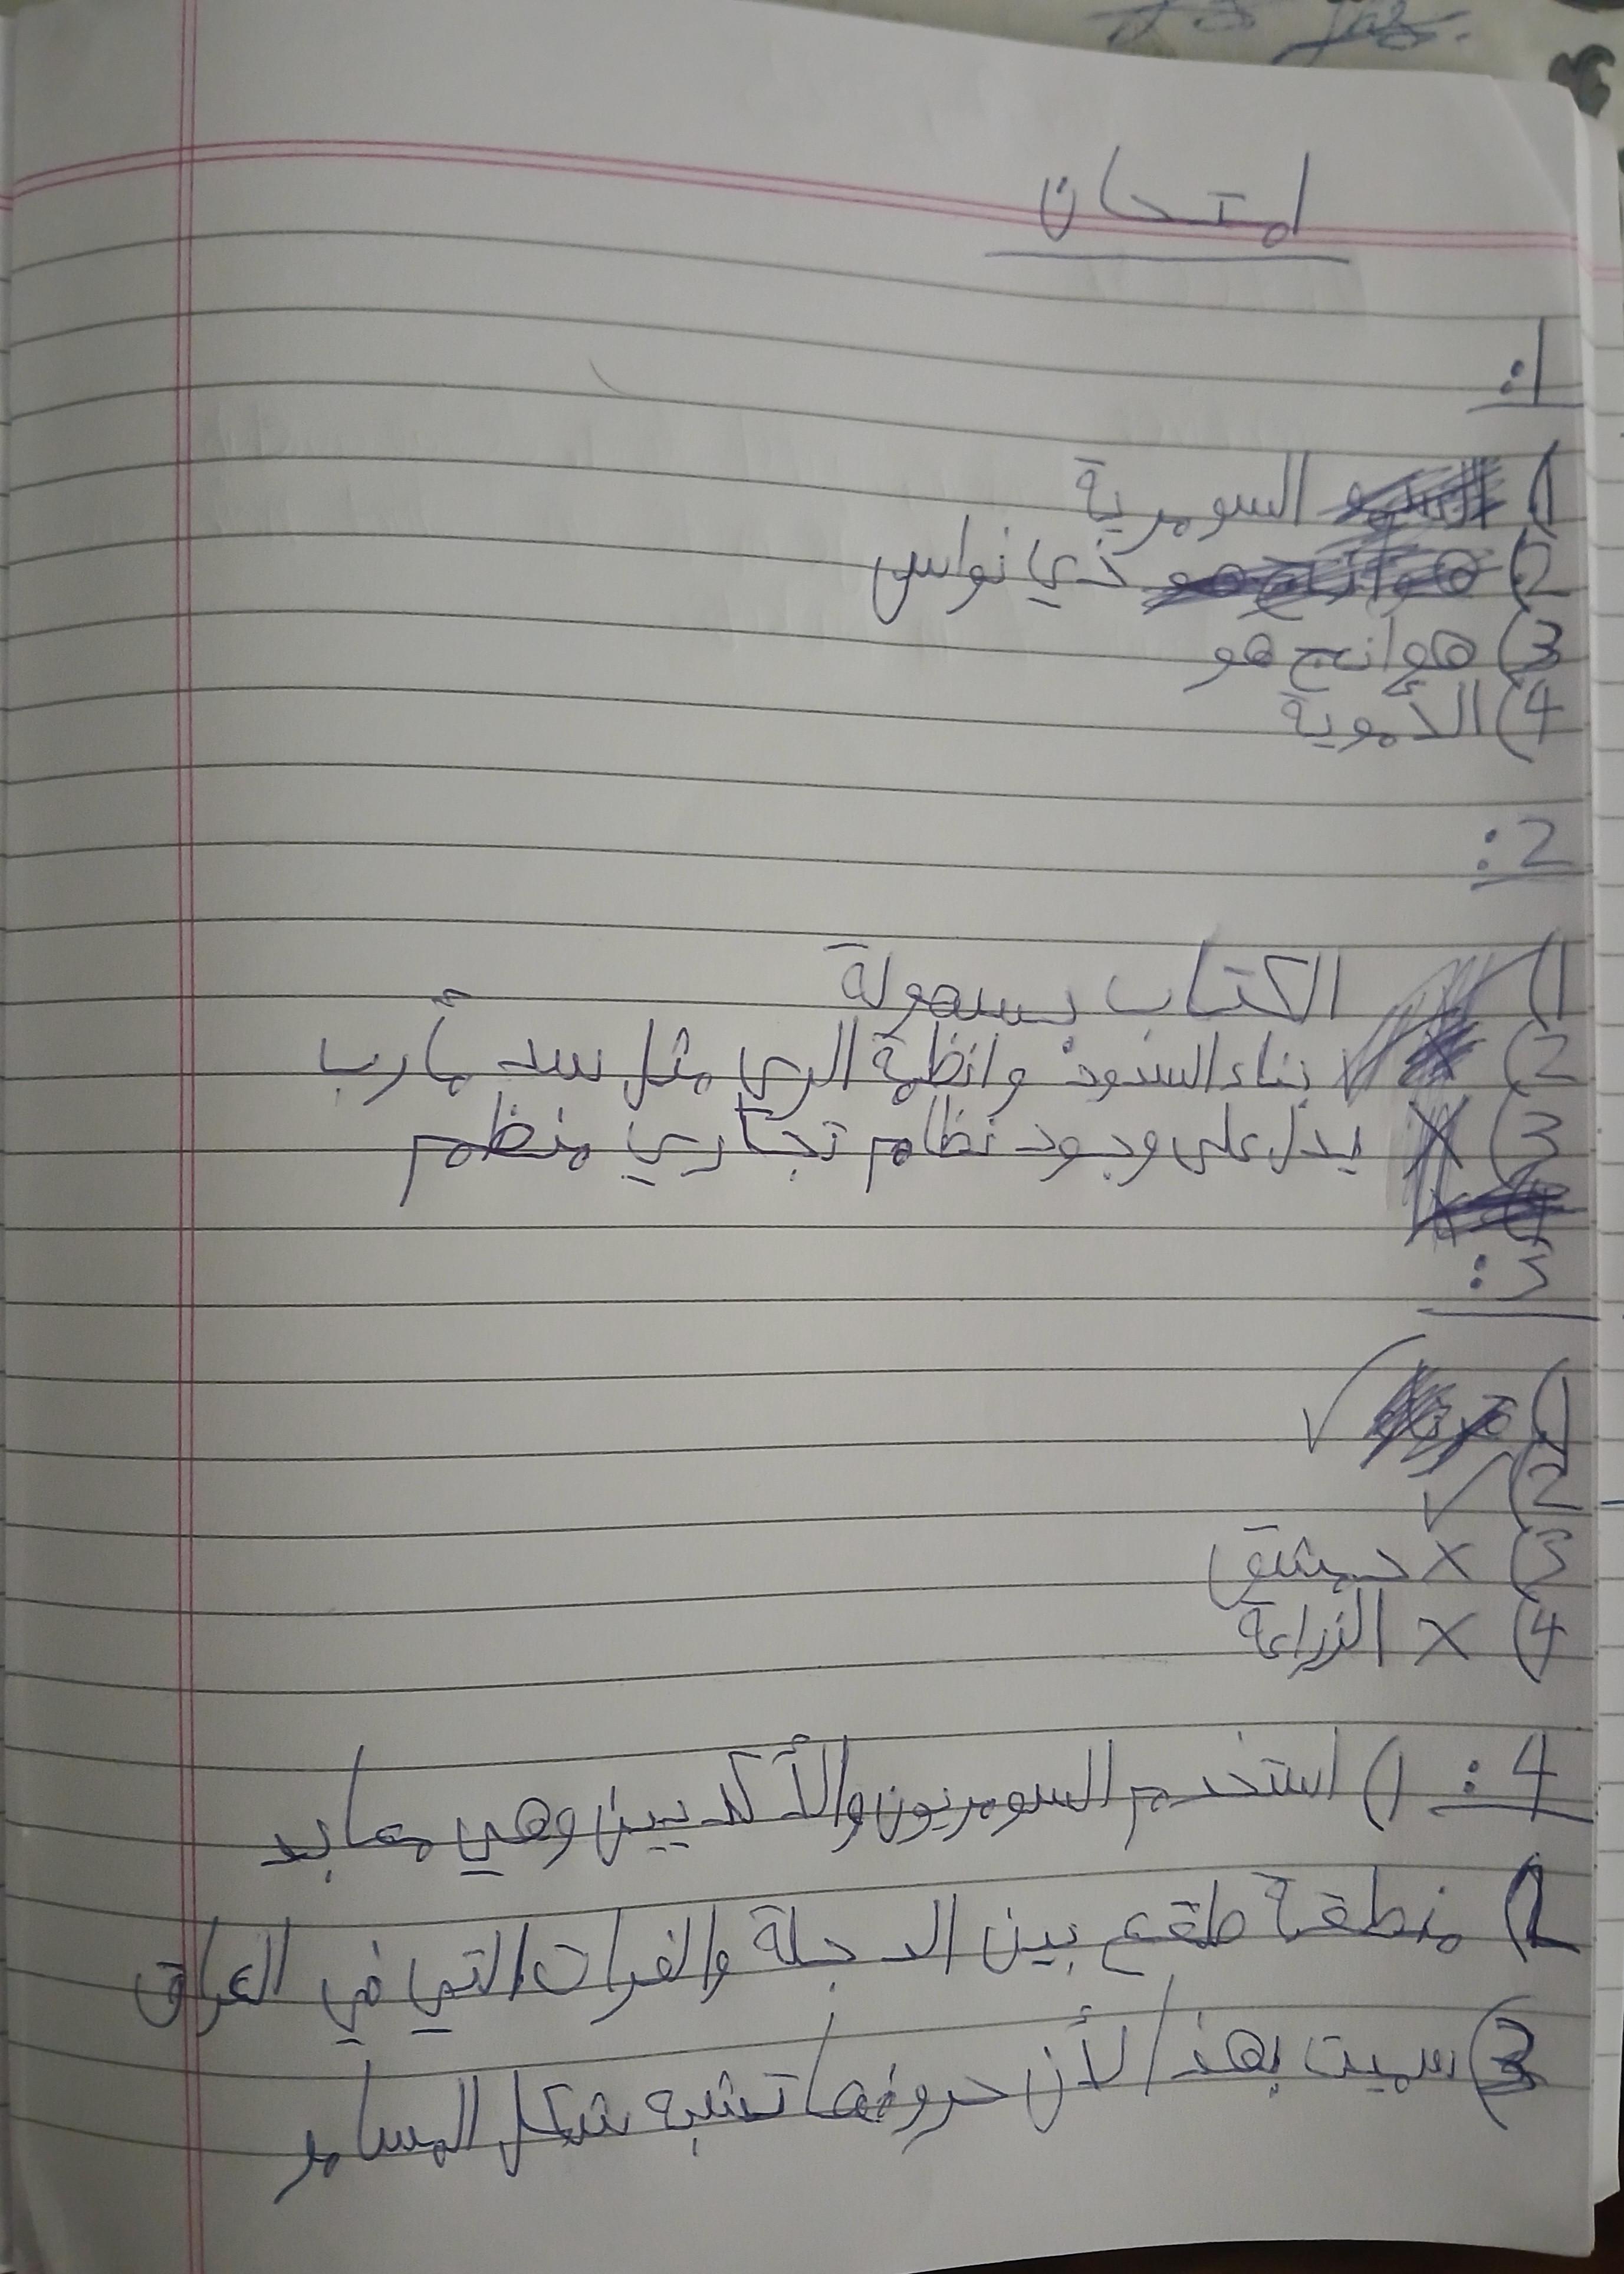 امتحان
1:
1) السومرية
2) ذي نواس
3) هوانج هو
4) الأموية
2:
1) الكتاب بسهولة
2) بناء السدود وانظمة الري مثل سد مأرب
3) X يدل على وجود نظام تجاري منظم
3:
1) ✓
2) ✓
3) X دمشق
4) X الزراعة
4: 1) استخدم السومريون والأكديين وهي معابد
2) منطقة طقع بين الدجلة والفرات التي في العراق
3) سميت بهذا لأن حروفها تشبه شكل المسامر